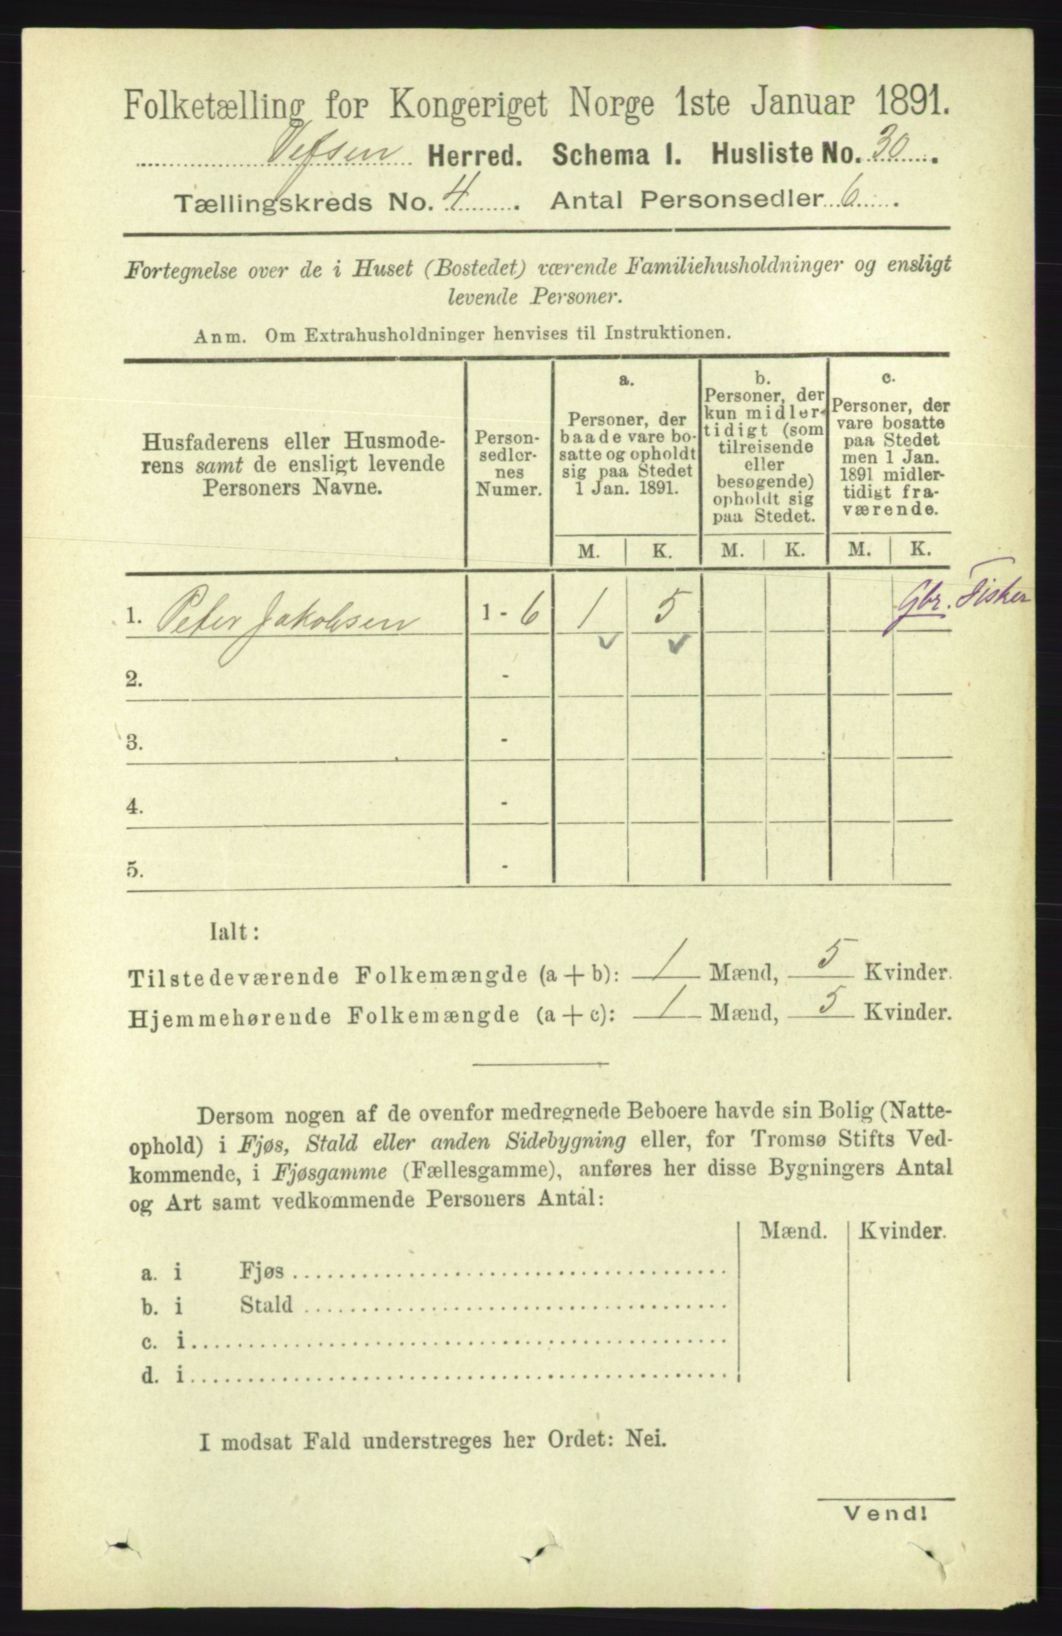 Folketælling for Kongeriget Norge 1ste Januar 1891.
Vefsen Herred. Schema I. Husliste No. 30.
Tællingskreds No. 4. Antal Personsedler 6.
Fortegnelse over de i Huset (Bostedet) værende Familiehusholdninger og ensligt
levende Personer.
Anm. Om Extrahusholdninger henvises til Instruktionen.
Husfaderens eller Husmode-
rens samt de ensligt levende
Personers Navne.
Person-
sedler-
nes
Numer.
a.
Personer, der
baade vare bo-
satte og opholdt
sig paa Stedet
1 Jan. 1891.
b.
Personer, der
kun midler-
tidigt (som
tilreisende
eller
besøgende)
opholdt sig
paa Stedet.
c.
Personer, der
vare bosatte
paa Stedet
men 1 Jan.
1891 midler-
tidigt fra-
værende.
M. K. M. K. M. K.
1. Peter Jakobsen 1 - 6 1 5 Gbr. Fisker
2. -
3. -
4. -
5. -
Ialt:
Tilstedeværende Folkemængde (a + b): 1 Mænd, 5 Kvinder.
Hjemmehørende Folkemængde (a + c): 1 Mænd, 5 Kvinder.
Dersom nogen af de ovenfor medregnede Beboere havde sin Bolig (Natte-
ophold) i Fjøs, Stald eller anden Sidebygning eller, for Tromsø Stifts Ved-
kommende, i Fjøsgamme (Fællesgamme), anføres her disse Bygningers Antal
og Art samt vedkommende Personers Antal:
Mænd. Kvinder.
a. i Fjøs
b. i Stald
c. i
d. i
I modsat Fald understreges her Ordet: Nei.
Vend!